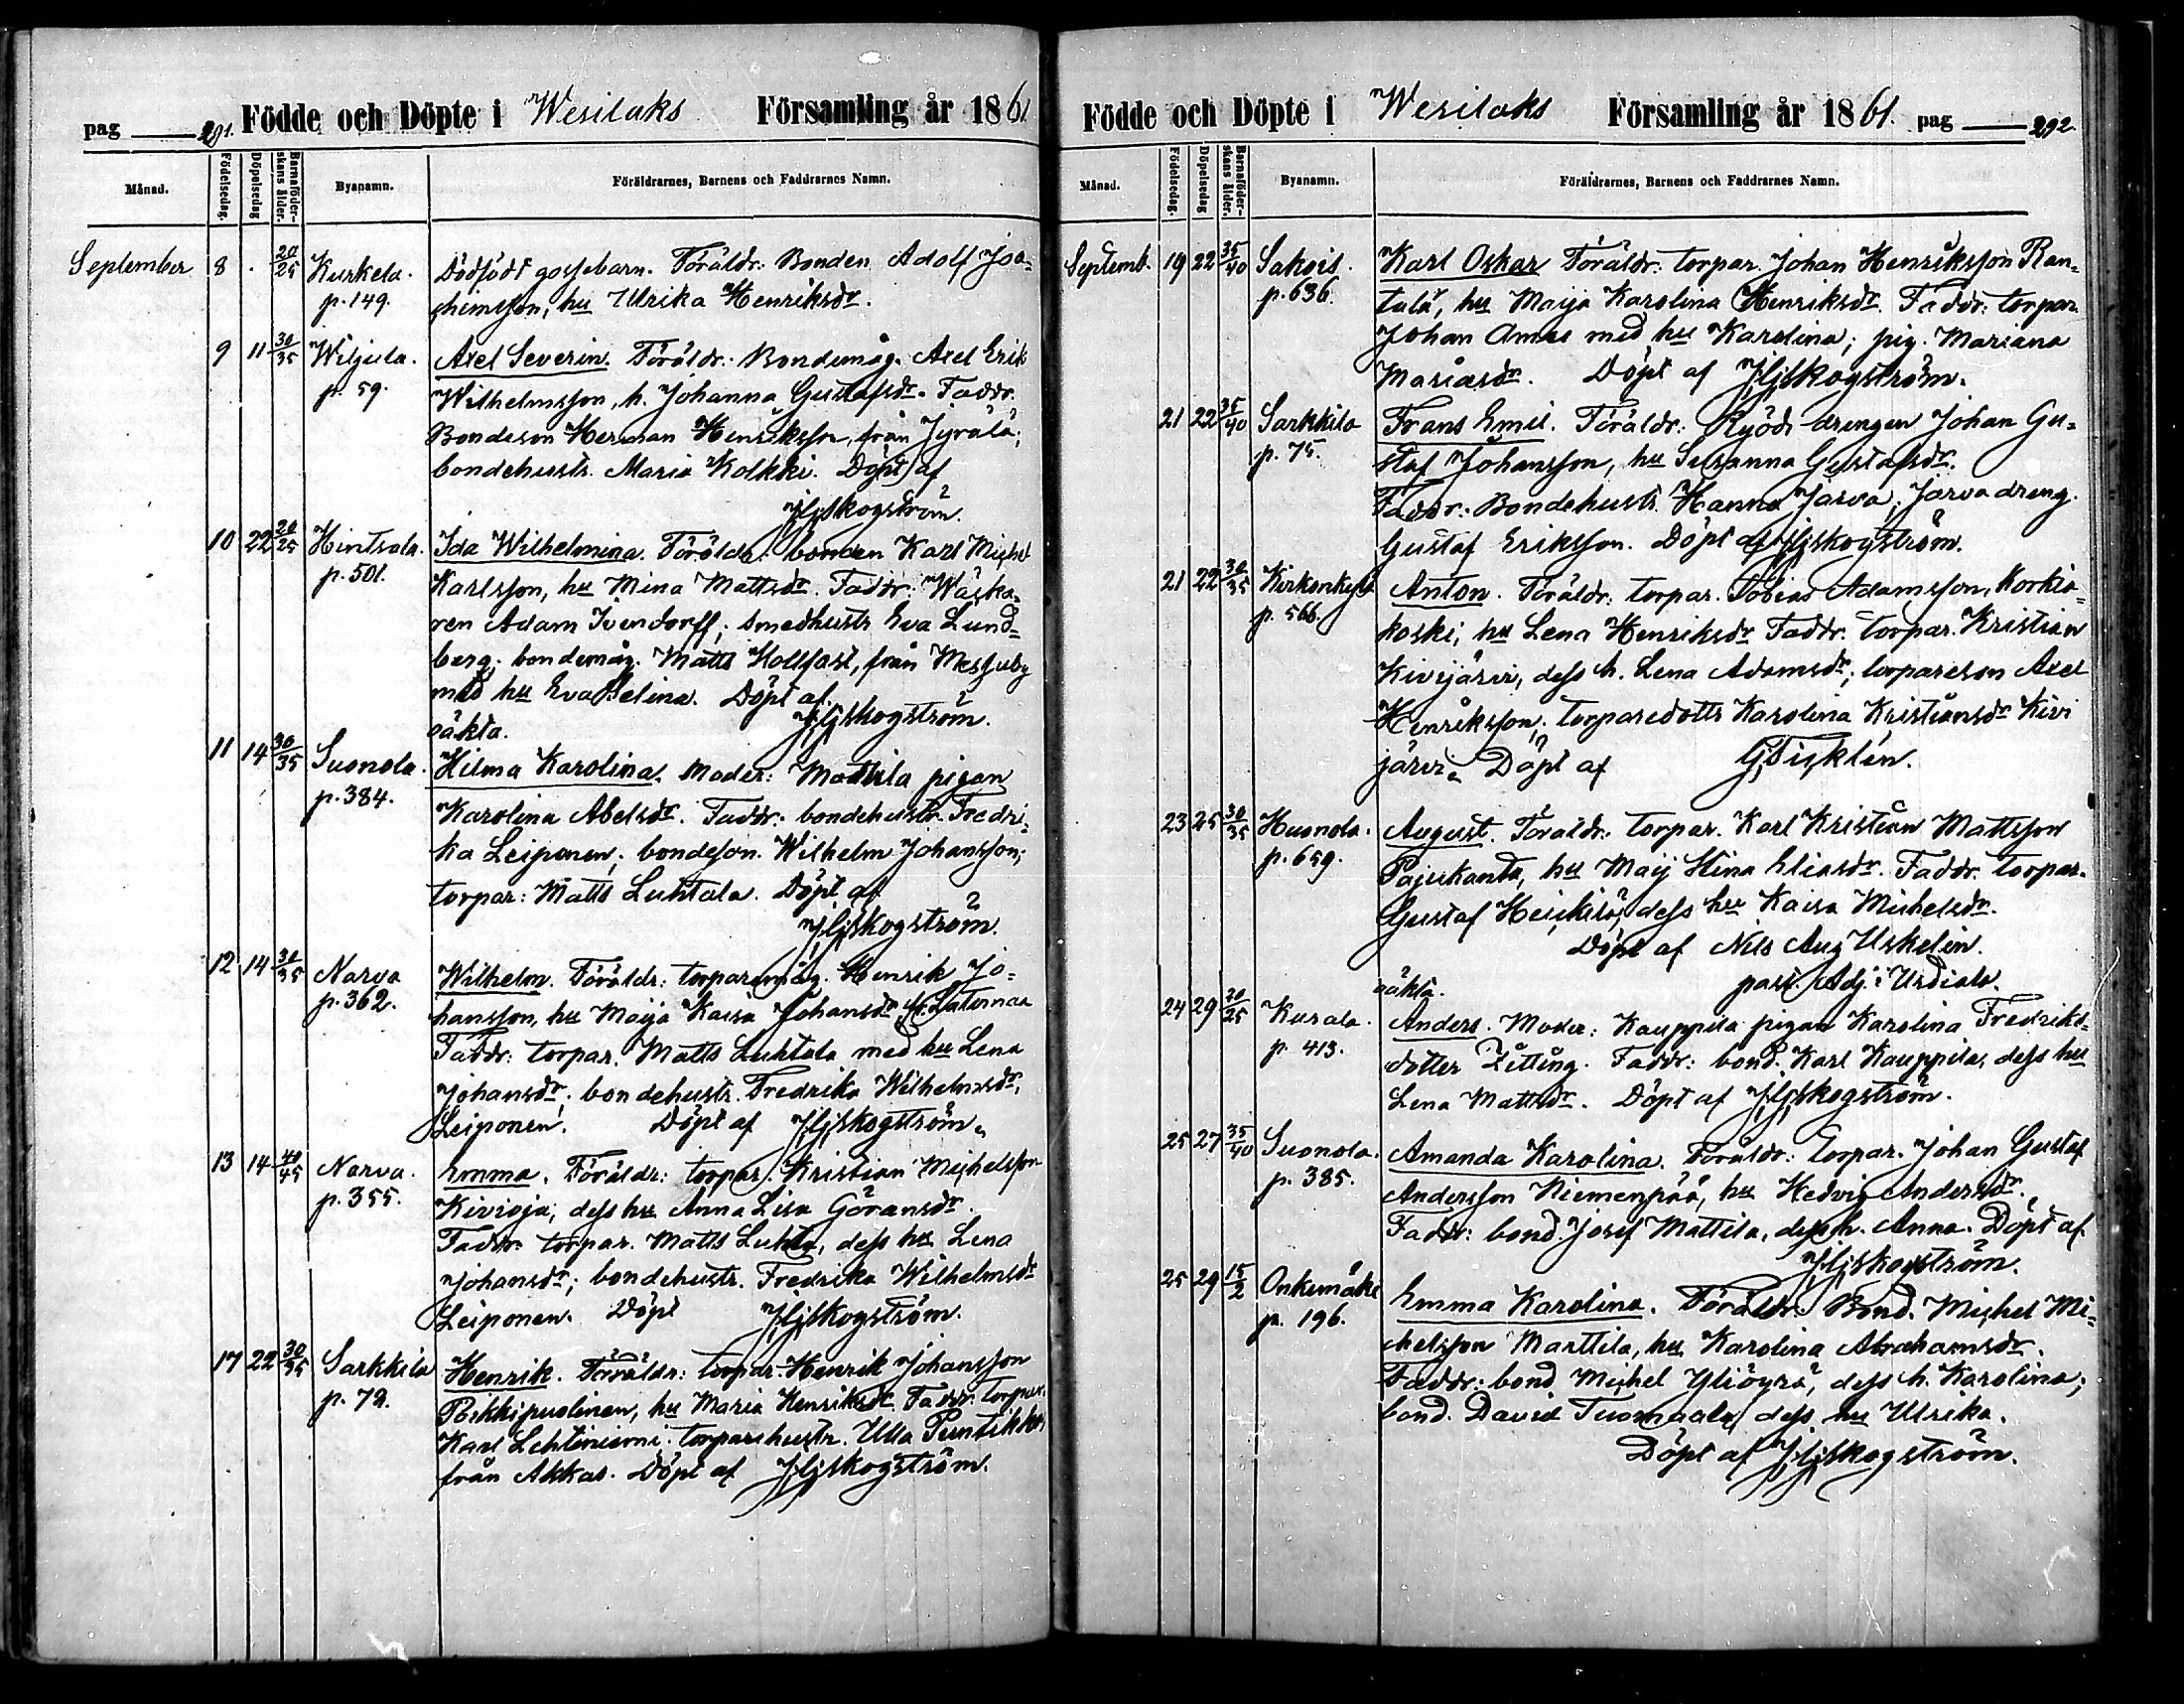 pag 291. Födde och Döpte i Wesilaks Församling år 1861
Månad. Födelsedag. Döpelsedag Barnaföderskans ålder. Byanamn. Föräldrarnes, Barnens och Faddrarnes Namn.
September 8 . 20/25 Kurkela. Dödfödt gossebarn. Föräldr: Bonden Adolf Joa-
p. 149. chimsson, hu Ulrika Henriksdr.
9 11 30/35 Wiljula. Axel Severin. Föräldr: Bondemåg. Axel Erik
p. 59. Wilhelmsson, h. Johanna Gustafsdr. Faddr.
Bondeson Herman Henriksson, från Jyrälä;
bondehustr. Maria Kolkki. Döpt af
JGSkogström.
10 22 20/25 Hintsala. Ida Wilhelmina. Föräldr: bonden Karl Michel
p. 501. Karlsson, hu Mina Mattsdr. Faddr: Waska-
ren Adam Ivendorff; smedhustr Eva Lund-
berg; bondemåg. Matts Hollfast, från Mesjuby
med hu Eva Helina. Döpt af
JGSkogström.
oäkta.
11 14 30/35 Suonola. Hilma Karolina. Moder: Mattila pigan
p. 384. Karolina Abelsdr. Faddr: bondehustr. Fredri-
ka Leiponen; bondeson. Wilhelm Johansson;
torpar: Matts Luhtala. Döpt af
JGSkogström.
12 14 30/35 Narva Wilhelm. Föräldr: torparemåg. Henrik Jo-
p. 362. hansson, hu Maija Kaisa Johansdr,
Faddr: torpar. Matts Luhtala med hu Lena
Johansdr; bondehustr. Fredrika Wilhelmsdr,
Leiponen. Döpt af JGSkogström.
13 14 40/45 Narva. Emma. Föräldr: torpar. Kristian Michelsson
p. 355. Kivioja, dess hu Anna Lisa Göransdr.
Faddr: torpar. Matts Luhta, dess hu Lena
Johansdr; bondehustr. Fredrika Wilhelmsdr
Leiponen. Döpt JGSkogström.
17 22 30/35 Sarkkila Henrik. Föräldr: torpar. Henrik Johansson
p. 72. Pikkipuolinen, hu Maria Henriksdr. Faddr. torpar.
Karl Lehtiniemi; torparehustr. Ulla Puntikka,
från Akkas. Döpt af JGSkogström.
Födde och Döpte i Wesilaks Församling år 1861. pag 292
Månad. Födelsedag. Döpelsedag Barnaföderskans ålder. Byanamn. Föräldrarnes, Barnens och Faddrarnes Namn.
Septemb. 19 22 35/40 Sakois. Karl Oskar Föräldr: torpar. Johan Henriksson Ran-
p. 636. tala, hu Maija Karolina Henriksdr. Faddr: torpar.
Johan med hu Karolina; pig. Mariana
Mariasdr. Döpt af JGSkogström.
21 22 35/40 Sarkkila Frans Emil. Föräldr: Ryödi drengen Johan Gu-
p. 75. staf Johansson, hu Susanna Gustafsdr.
Faddr: Bondehustr. Hanna Jarva; Jarva dreng.
Gustaf Eriksson. Döpt af JGSkogström.
21 22 30/35 Kirkonkylä Anton. Föräldr: torpar. Tobias Adamsson, Korkia-
p. 566. koski, hu Lena Henriksdr Faddr: torpar. Kristian
Kivijärvi, dess h. Lena Adamsdr; torpareson Axel
Henriksson; torparedottr Karolina Kristiansdr Kivi
järvi. Döpt af
23 25 30/35 Huonola. August. Föräldr: torpar. Karl Kristian Mattsson
p. 659. Pajukanta, hu Maij Stina Eliasdr. Faddr. torpar.
Gustaf Heickilä, dess hu Kaisa Michelsdr.
Döpt af Nils Aug Uskelin.
past. Adj. i Urdiala.
oäkta.
24 29 20/25 Kurala. Anders. Moder: Kauppila pigan Karolina Fredriks-
p. 413. dotter Zitting. Faddr: bond. Karl Kauppila, dess hu
Lena Mattsdr. Döpt af JGSkogström.
25 27 35/40 Suonola. Amanda Karolina. Föräldr: torpar. Johan Gustaf
p. 385. Andersson Niemenpää, hu Hedvig Andersdr.
Faddr: bond. Josef Mattila, dess h. Anna. Döpt af
JGSkogström.
25 29 15/2 Onkemäki Emma Karolina. Föräldr: Bond. Michel Mi-
p. 196. chelsson Marttila, hu Karolina Abrahamsdr.
Faddr: bond Michel Yliöyrä, dess h. Karolina;
bond. David Tuomaala, dess hu Ulrika.
Döpt af JGSkogström.